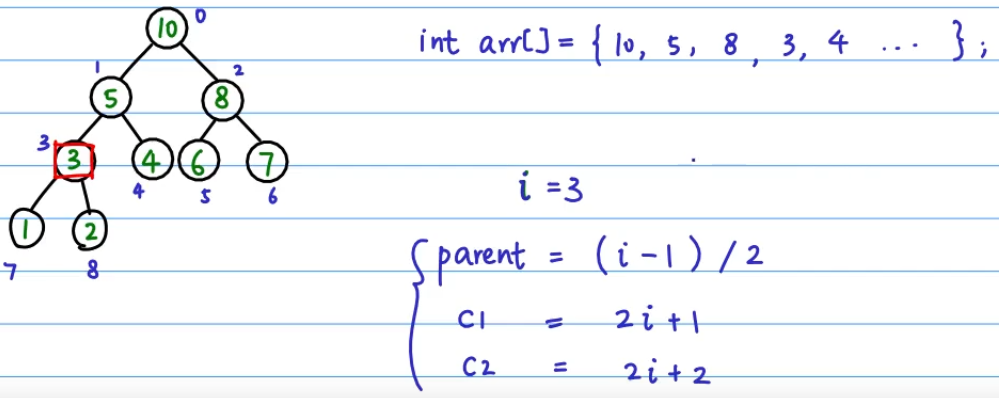 10 0
int arr[] = { 10, 5, 8, 3, 4 ... };
1 2
5 8
3 3 4 6 7
4 5 6
i = 3
1 2
7 8
parent = (i-1)/2
c1 = 2i+1
c2 = 2i+2